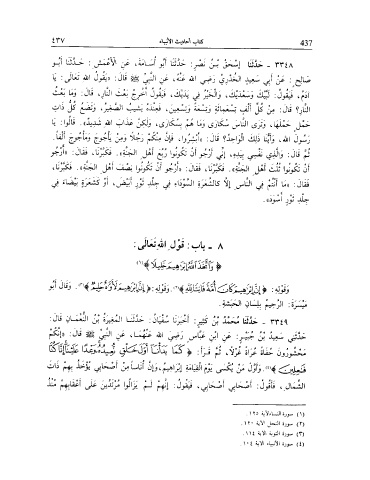 ٤٣٧ كتاب أحاديث الأنبياء 437
٣٣٤٨ - حَدَّثَنَا إِسْحَقُ بْنُ نَصْرٍ: حَدَّثَنَا أَبُو أُسَامَةَ، عَنِ الْأَعْمَشِ: حَدَّثَنَا أَبُو
صَالِحٍ: عَنْ أَبِي سَعِيدٍ الْخُدْرِيِّ رَضِيَ اللهُ عَنْهُ، عَنِ النَّبِيِّ ﷺ قَالَ: «يَقُولُ اللهُ تَعَالَى: يَا
آدَمُ، فَيَقُولُ: لَبَّيْكَ وَسَعْدَيْكَ، وَالْخَيْرُ فِي يَدَيْكَ، فَيَقُولُ: أَخْرِجْ بَعْثَ النَّارِ، قَالَ: وَمَا بَعْثُ
النَّارِ؟ قَالَ: مِنْ كُلِّ أَلْفٍ تِسْعَمِائَةٍ وَتِسْعَةً وَتِسْعِينَ، فَعِنْدَهُ يَشِيبُ الصَّغِيرُ، وَتَضَعُ كُلُّ ذَاتِ
حَمْلٍ حَمْلَهَا، وَتَرَى النَّاسَ سُكَارَى وَمَا هُمْ بِسُكَارَى، وَلَكِنَّ عَذَابَ اللهِ شَدِيدٌ». قَالُوا: يَا
رَسُولَ اللهِ، وَأَيُّنَا ذَلِكَ الْوَاحِدُ؟ قَالَ: «أَبْشِرُوا، فَإِنَّ مِنْكُمْ رَجُلًا وَمِنْ يَأْجُوجَ وَمَأْجُوجَ أَلْفًا».
ثُمَّ قَالَ: وَالَّذِي نَفْسِي بِيَدِهِ، إِنِّي أَرْجُو أَنْ تَكُونُوا رُبُعَ أَهْلِ الْجَنَّةِ». فَكَبَّرْنَا، فَقَالَ: «أَرْجُو
أَنْ تَكُونُوا ثُلُثَ أَهْلِ الْجَنَّةِ». فَكَبَّرْنَا، فَقَالَ: «أَرْجُو أَنْ تَكُونُوا نِصْفَ أَهْلِ الْجَنَّةِ». فَكَبَّرْنَا،
فَقَالَ: «مَا أَنْتُمْ فِي النَّاسِ إِلَّا كَالشَّعَرَةِ السَّوْدَاءِ فِي جِلْدِ ثَوْرٍ أَبْيَضَ، أَوْ كَشَعَرَةٍ بَيْضَاءَ فِي
جِلْدِ ثَوْرٍ أَسْوَدَ».
٨ - باب: قَوْلِ اللهِ تَعَالَى:
﴿وَاتَّخَذَ اللَّهُ إِبْرَاهِيمَ خَلِيلًا﴾(١)
وَقَوْلِهِ: ﴿إِنَّ إِبْرَاهِيمَ كَانَ أُمَّةً قَانِتًا لِلَّهِ﴾(٢). وَقَوْلِهِ: ﴿إِنَّ إِبْرَاهِيمَ لَأَوَّاهٌ حَلِيمٌ﴾(٣). وَقَالَ أَبُو
مَيْسَرَةَ: الرَّحِيمُ بِلِسَانِ الْحَبَشَةِ.
٣٣٤٩ - حَدَّثَنَا مُحَمَّدُ بْنُ كَثِيرٍ: أَخْبَرَنَا سُفْيَانُ: حَدَّثَنَا الْمُغِيرَةُ بْنُ النُّعْمَانِ قَالَ:
حَدَّثَنِي سَعِيدُ بْنُ جُبَيْرٍ: عَنِ ابْنِ عَبَّاسٍ رَضِيَ اللهُ عَنْهُمَا، عَنِ النَّبِيِّ ﷺ قَالَ: «إِنَّكُمْ
مَحْشُورُونَ حُفَاةً عُرَاةً غُرْلًا، ثُمَّ قَرَأَ: ﴿كَمَا بَدَأْنَا أَوَّلَ خَلْقٍ نُعِيدُهُ وَعْدًا عَلَيْنَا إِنَّا كُنَّا
فَاعِلِينَ﴾(٤). وَأَوَّلُ مَنْ يُكْسَى يَوْمَ الْقِيَامَةِ إِبْرَاهِيمُ، وَإِنَّ أُنَاسًا مِنْ أَصْحَابِي يُؤْخَذُ بِهِمْ ذَاتَ
الشِّمَالِ، فَأَقُولُ: أَصْحَابِي أَصْحَابِي، فَيَقُولُ: إِنَّهُمْ لَمْ يَزَالُوا مُرْتَدِّينَ عَلَى أَعْقَابِهِمْ مُنْذُ
(١) سورة النساء الآية ١٢٥.
(٢) سورة النحل الآية ١٢٠.
(٣) سورة التوبة الآية ١١٤.
(٤) سورة الأنبياء الآية ١٠٤